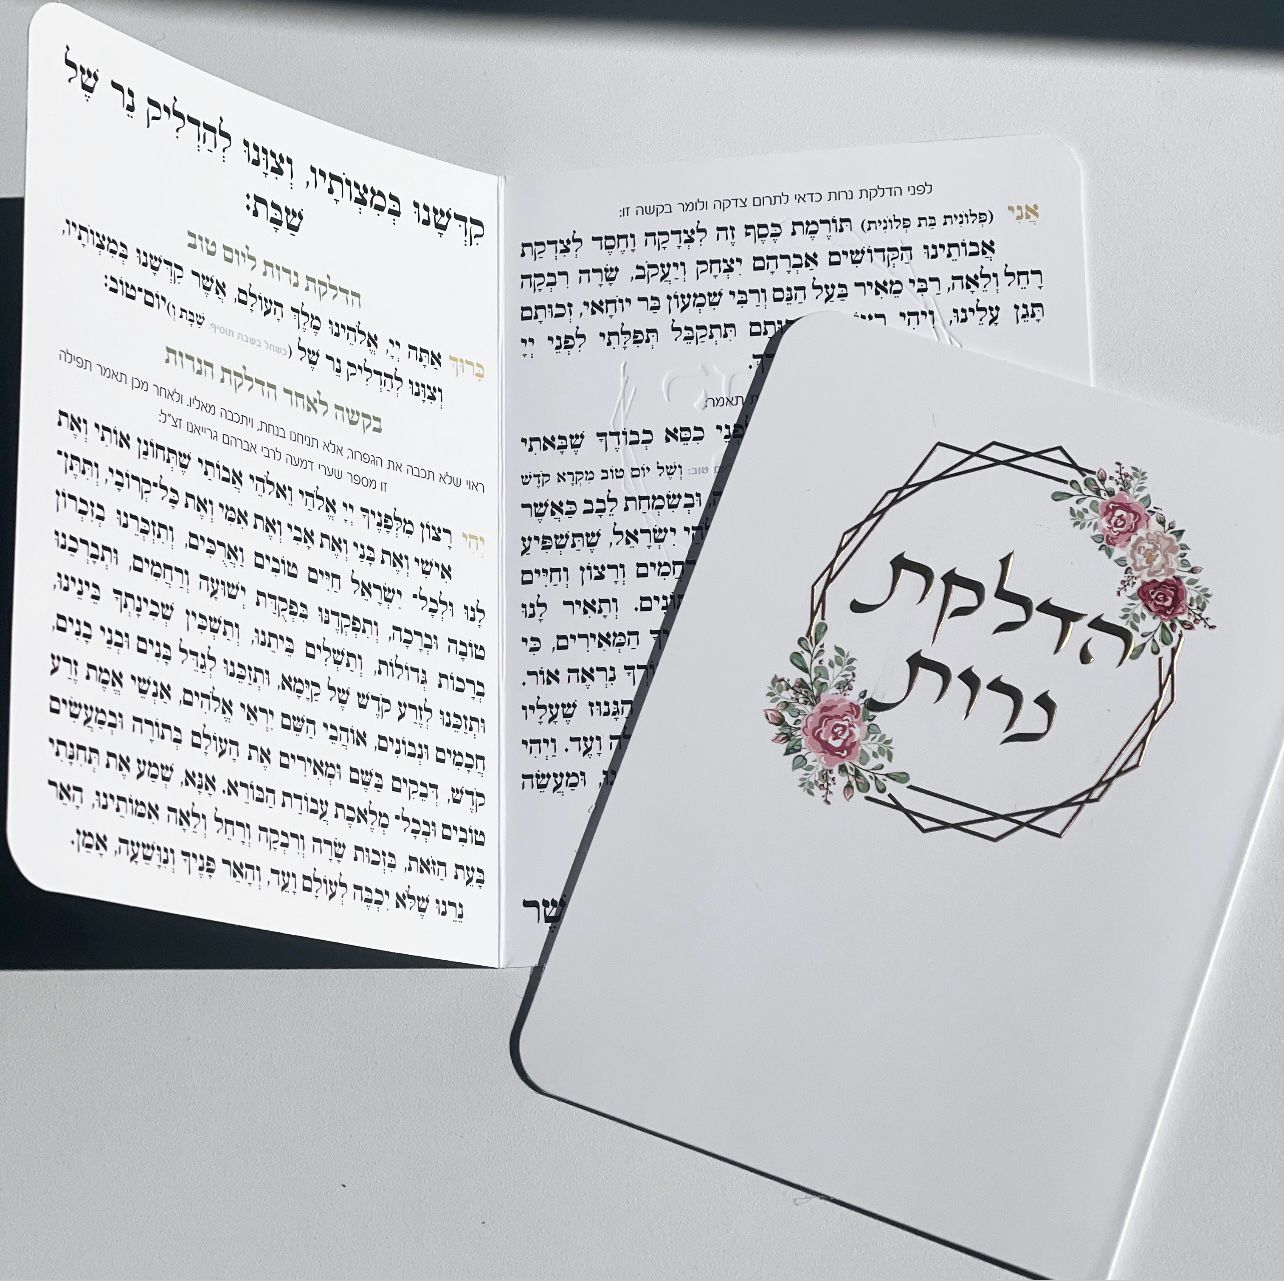 הדלקת
נרות
לפני הדלקת נרות כדאי לתרום צדקה ולומר בקשה זו:
אֲנִי (פְּלוֹנִית בַּת פְּלוֹנִית) תּוֹרֶמֶת כֶּסֶף זֶה לִצְדָקָה וָחֶסֶד לְצִדְקַת
אֲבוֹתֵינוּ הַקְּדוֹשִׁים אַבְרָהָם יִצְחָק וְיַעֲקֹב, שָׂרָה רִבְקָה
רָחֵל וְלֵאָה, רַבִּי מֵאִיר בַּעַל הַנֵּס וְרַבִּי שִׁמְעוֹן בַּר יוֹחַאי, זְכוּתָם
תָּגֵן עָלֵינוּ, וִיהִי תִּתְקַבֵּל תְּפִלָּתִי לִפְנֵי יְיָ
תאמר:
כִּסֵּא כְבוֹדֶךָ שֶׁבָּאתִי
טוב: וְשֶׁל יוֹם טוֹב מִקְרָא קֹדֶשׁ
וּבְשִׂמְחַת לֵבָב כַּאֲשֶׁר
יִשְׂרָאֵל, שֶׁתַּשְׁפִּיעַ
וְרָצוֹן וְחַיִּים
וְתָאִיר לָנוּ
הַמְּאִירִים, כִּי
נִרְאֶה אוֹר.
הַגָּנוּז שֶׁעָלָיו
וָעֶד. וִיהִי
וּמַעֲשֵׂה
קִדְּשָׁנוּ בְּמִצְוֹתָיו, וְצִוָּנוּ לְהַדְלִיק נֵר שֶׁל
שַׁבָּת:
הדלקת נרות ליום טוב
בָּרוּךְ אַתָּה יְיָ, אֱלֹהֵינוּ מֶלֶךְ הָעוֹלָם, אֲשֶׁר קִדְּשָׁנוּ בְּמִצְוֹתָיו,
וְצִוָּנוּ לְהַדְלִיק נֵר שֶׁל (כשחל בשבת תוסיף: שַׁבָּת וְ)יוֹם־טוֹב:
בקשה לאחר הדלקת הנרות
ראוי שלא תכבה את הגפרור, אלא תניחנו בנחת, ויתכבה מאליו. ולאחר מכן תאמר תפילה
זו מספר שערי דמעה לרבי אברהם גרייאנו זצ"ל:
יְהִי רָצוֹן מִלְּפָנֶיךָ יְיָ אֱלֹהַי וֵאלֹהֵי אֲבוֹתַי שֶׁתְּחוֹנֵן אוֹתִי וְאֶת
אִישִׁי וְאֶת בָּנַי וְאֶת אָבִי וְאֶת אִמִּי וְאֶת כָּל־קְרוֹבַי, וְתִתֶּן־
לָנוּ וּלְכָל־ יִשְׂרָאֵל חַיִּים טוֹבִים וַאֲרֻכִּים, וְתִזְכְּרֵנוּ בְּזִכְרוֹן
טוֹבָה וּבְרָכָה, וְתִפְקְדֵנוּ בִּפְקֻדַּת יְשׁוּעָה וְרַחֲמִים, וּתְבָרְכֵנוּ
בְּרָכוֹת גְּדוֹלוֹת, וְתַשְׁלִים בֵּיתֵנוּ, וְתַשְׁכִּין שְׁכִינָתְךָ בֵּינֵינוּ,
וּתְזַכֵּנוּ לְזֶרַע קֹדֶשׁ שֶׁל קַיָּמָא, וּתְזַכֵּנוּ לְגַדֵּל בָּנִים וּבְנֵי בָנִים,
חֲכָמִים וּנְבוֹנִים, אוֹהֲבֵי הַשֵּׁם יִרְאֵי אֱלֹהִים, אַנְשֵׁי אֱמֶת זֶרַע
קֹדֶשׁ, דְּבֵקִים בַּשֵּׁם וּמְאִירִים אֶת הָעוֹלָם בְּתוֹרָה וּבְמַעֲשִׂים
טוֹבִים וּבְכָל־ מְלֶאכֶת עֲבוֹדַת הַבּוֹרֵא. אָנָּא, שְׁמַע אֶת תְּחִנָּתִי
בָּעֵת הַזּאת, בִּזְכוּת שָׂרָה וְרִבְקָה וְרָחֵל וְלֵאָה אִמּוֹתֵינוּ, הָאֵר
נֵרֵנוּ שֶׁלֹּא יִכְבֶּה לְעוֹלָם וָעֶד, וְהָאֵר פָּנֶיךָ וְנִוָּשֵׁעָה, אָמֵן.